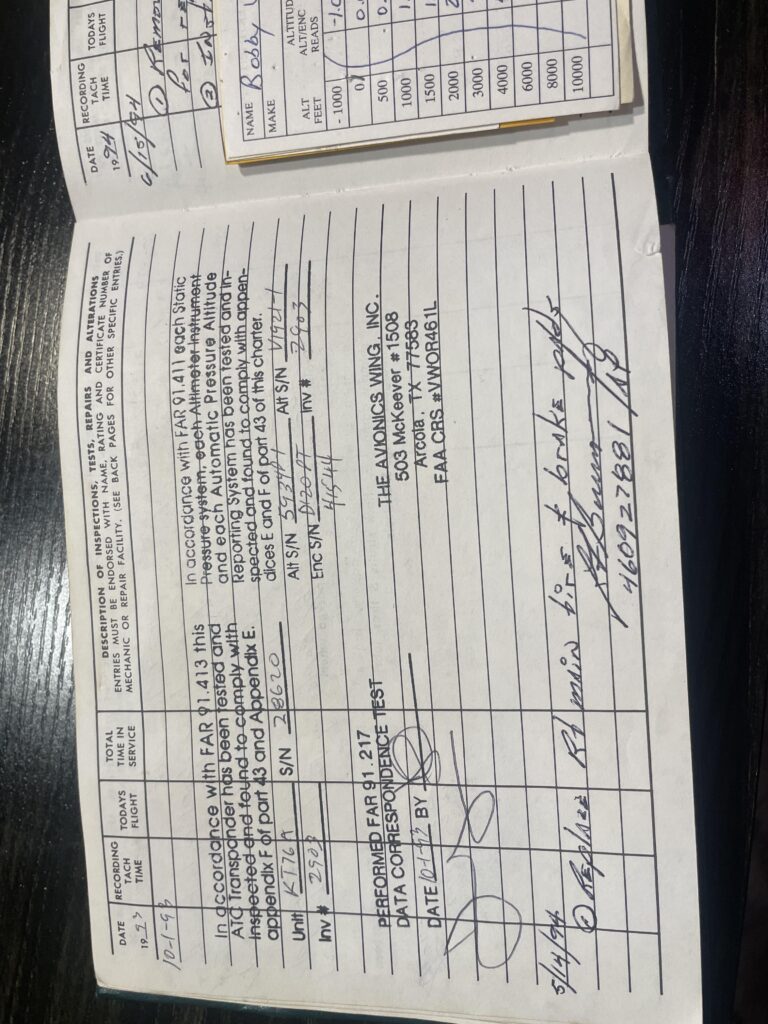 DATE
19 93
RECORDING
TACH
TIME
TODAYS
FLIGHT
TOTAL
TIME IN
SERVICE
DESCRIPTION OF INSPECTIONS, TESTS, REPAIRS AND ALTERATIONS
ENTRIES MUST BE ENDORSED WITH NAME, RATING AND CERTIFICATE NUMBER OF
MECHANIC OR REPAIR FACILITY. (SEE BACK PAGES FOR OTHER SPECIFIC ENTRIES.)
10-1-93
In accordance with FAR 91.413 this
ATC Transponder has been tested and
inspected and found to comply with
appendix F of part 43 and Appendix E.
Unit KT76A S/N 28620
Inv # 2903
In accordance with FAR 91.411 each Static
Pressure system, each Altimeter instrument
and each Automatic Pressure Altitude
Reporting System has been tested and in-
spected and found to comply with appen-
dices E and F of part 43 of this charter.
Alt S/N Alt S/N V1921-1
Enc S/N Inv # 2903
41544
PERFORMED FAR 91.217
DATA CORRESPONDENCE TEST
DATE 10-1-93 BY
THE AVIONICS WING, INC.
503 McKeever #1508
Arcola, TX 77583
FAA CRS #VWOR461L
5/14/94 Replace Rt main tire & brake pads
460927881 AP
DATE
19 94
RECORDING
TACH
TIME
TODAYS
FLIGHT
6/15/94
① Remo
for re
② INST
NAME Bobby
MAKE
ALT
FEET
ALTITUD
ALT/ENC
READS
- 1000 -1.0
0
500
1000
1500
2000
3000
4000
6000
8000
10000